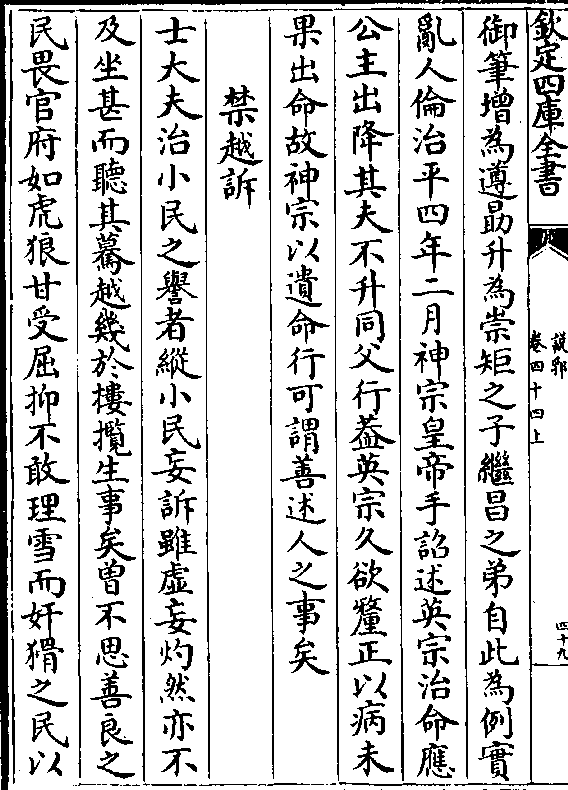 欽定四庫全書
說郛
卷四十四上
四十九
御筆增為遵勗升為崇矩之子繼昌之弟自此為例實
亂人倫治平四年二月神宗皇帝手詔述英宗治命應
公主出降其夫不升同父行葢英宗久欲釐正以病未
果出命故神宗以遺命行可謂善述人之事矣
禁越訴
士大夫治小民之譽者縱小民妄訴雖虛妄灼然亦不
及坐甚而聽其驀越幾於摟攬生事矣曽不思善良之
民畏官府如虎狼甘受屈抑不敢理雪而奸猾之民以